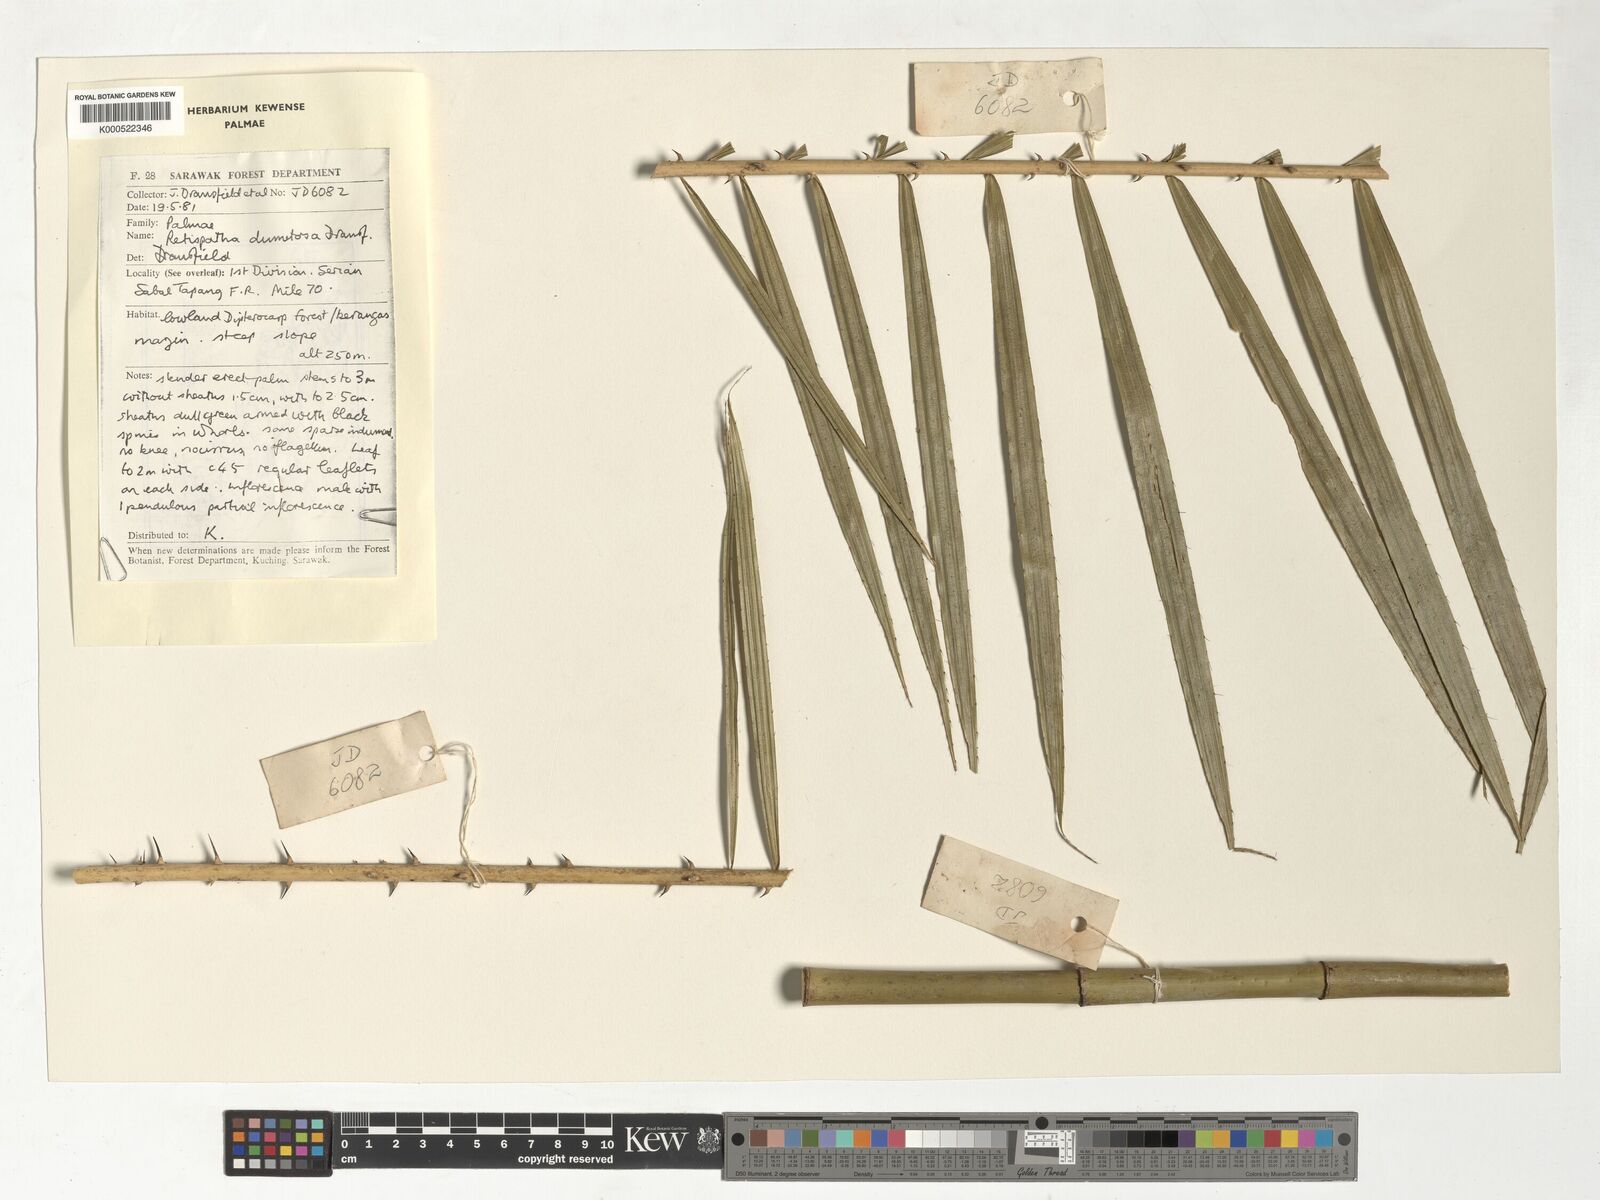 ROYAL BOTANIC GARDENS KEW
K000522346
HERBARIUM KEWENSE
PALMAE
F. 28 SARAWAK FOREST DEPARTMENT
Collector: J. Dransfield et al No: JD6082
Date: 19.5.81
Family: Palmae
Name: Retispatha dumetosa Dransf.
Det: Dransfield
Locality (See overleaf): 1st Division. Serian
Sabal Tapang F.R. Mile 70.
Habitat: lowland Dipterocarp Forest/kerangas
margin. steep slope
alt 250m.
Notes: slender erect palm stems to 3m
without sheaths 1.5cm, with to 2.5cm.
sheaths dull green armed with black
spines in whorls. some sparse indument.
no knee, no cirrus, no flagellum. Leaf
to 2m with c45 regular leaflets
on each side. inflorescence male with
1 pendulous partial inflorescence.
Distributed to: K.
When new determinations are made please inform the Forest
Botanist, Forest Department, Kuching, Sarawak.
JD
6082
JD
6082
JD
6082
0 1 2 3 4 5 6 7 8 9 10
cm
copyright reserved
Royal Botanic Gardens
Kew
D50 Illuminant, 2 degree observer
Density
Golden Thread
Colors by Munsell Color Services Lab